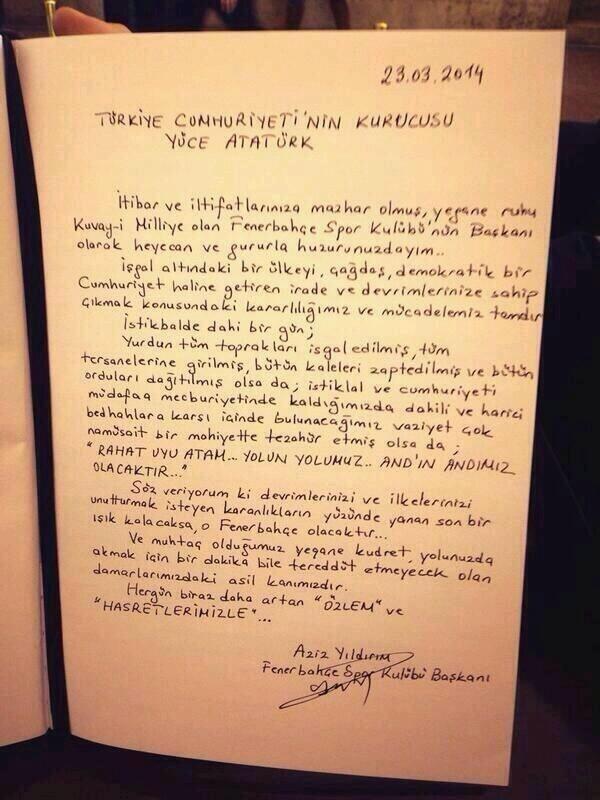 23.03.2014
TÜRKİYE CUMHURİYETİ'NİN KURUCUSU
YÜCE ATATÜRK
İtibar ve iltifatlarınıza mazhar olmuş, yegane ruhu
Kuvay-i Milliye olan Fenerbahçe Spor Kulübü'nün Başkanı
olarak heyecan ve gururla huzurunuzdayım..
İşgal altındaki bir ülkeyi, çağdaş, demokratik bir
Cumhuriyet haline getiren irade ve devrimlerinize sahip
çıkmak konusundaki kararlılığımız ve mücadelemiz tamdır
İstikbalde dahi bir gün;
Yurdun tüm toprakları isgal edilmiş, tüm
tersanelerine girilmiş, bütün kaleleri zaptedilmiş ve bütün
orduları dağıtılmış olsa da; istiklal ve cumhuriyeti
müdafaa mecburiyetinde kaldığımızda dahili ve harici
bedhahlara karsı icinde bulunacağımız vaziyet çok
namüsait bir mahiyette tezahür etmiş olsa da;
"RAHAT UYU ATAM... YOLUN YOLUMUZ.. AND'IN ANDIMIZ
OLACAKTIR..."
Söz veriyorum ki devrimlerinizi ve ilkelerinizi
unutturmak isteyen karanlıkların yüzünde yanan son bir
ışık kalacaksa, o Fenerbahçe olacaktır...
Ve muhtaç olduğumuz yegane kudret, yolunuzda
akmak için bir dakika bile tereddüt etmeyecek olan
damarlarımızdaki asil kanımızdır.
Hergün biraz daha artan "ÖZLEM" ve
"HASRETLERİMİZLE"...
Aziz Yıldırım
Fenerbahçe Spor Kulübü Başkanı